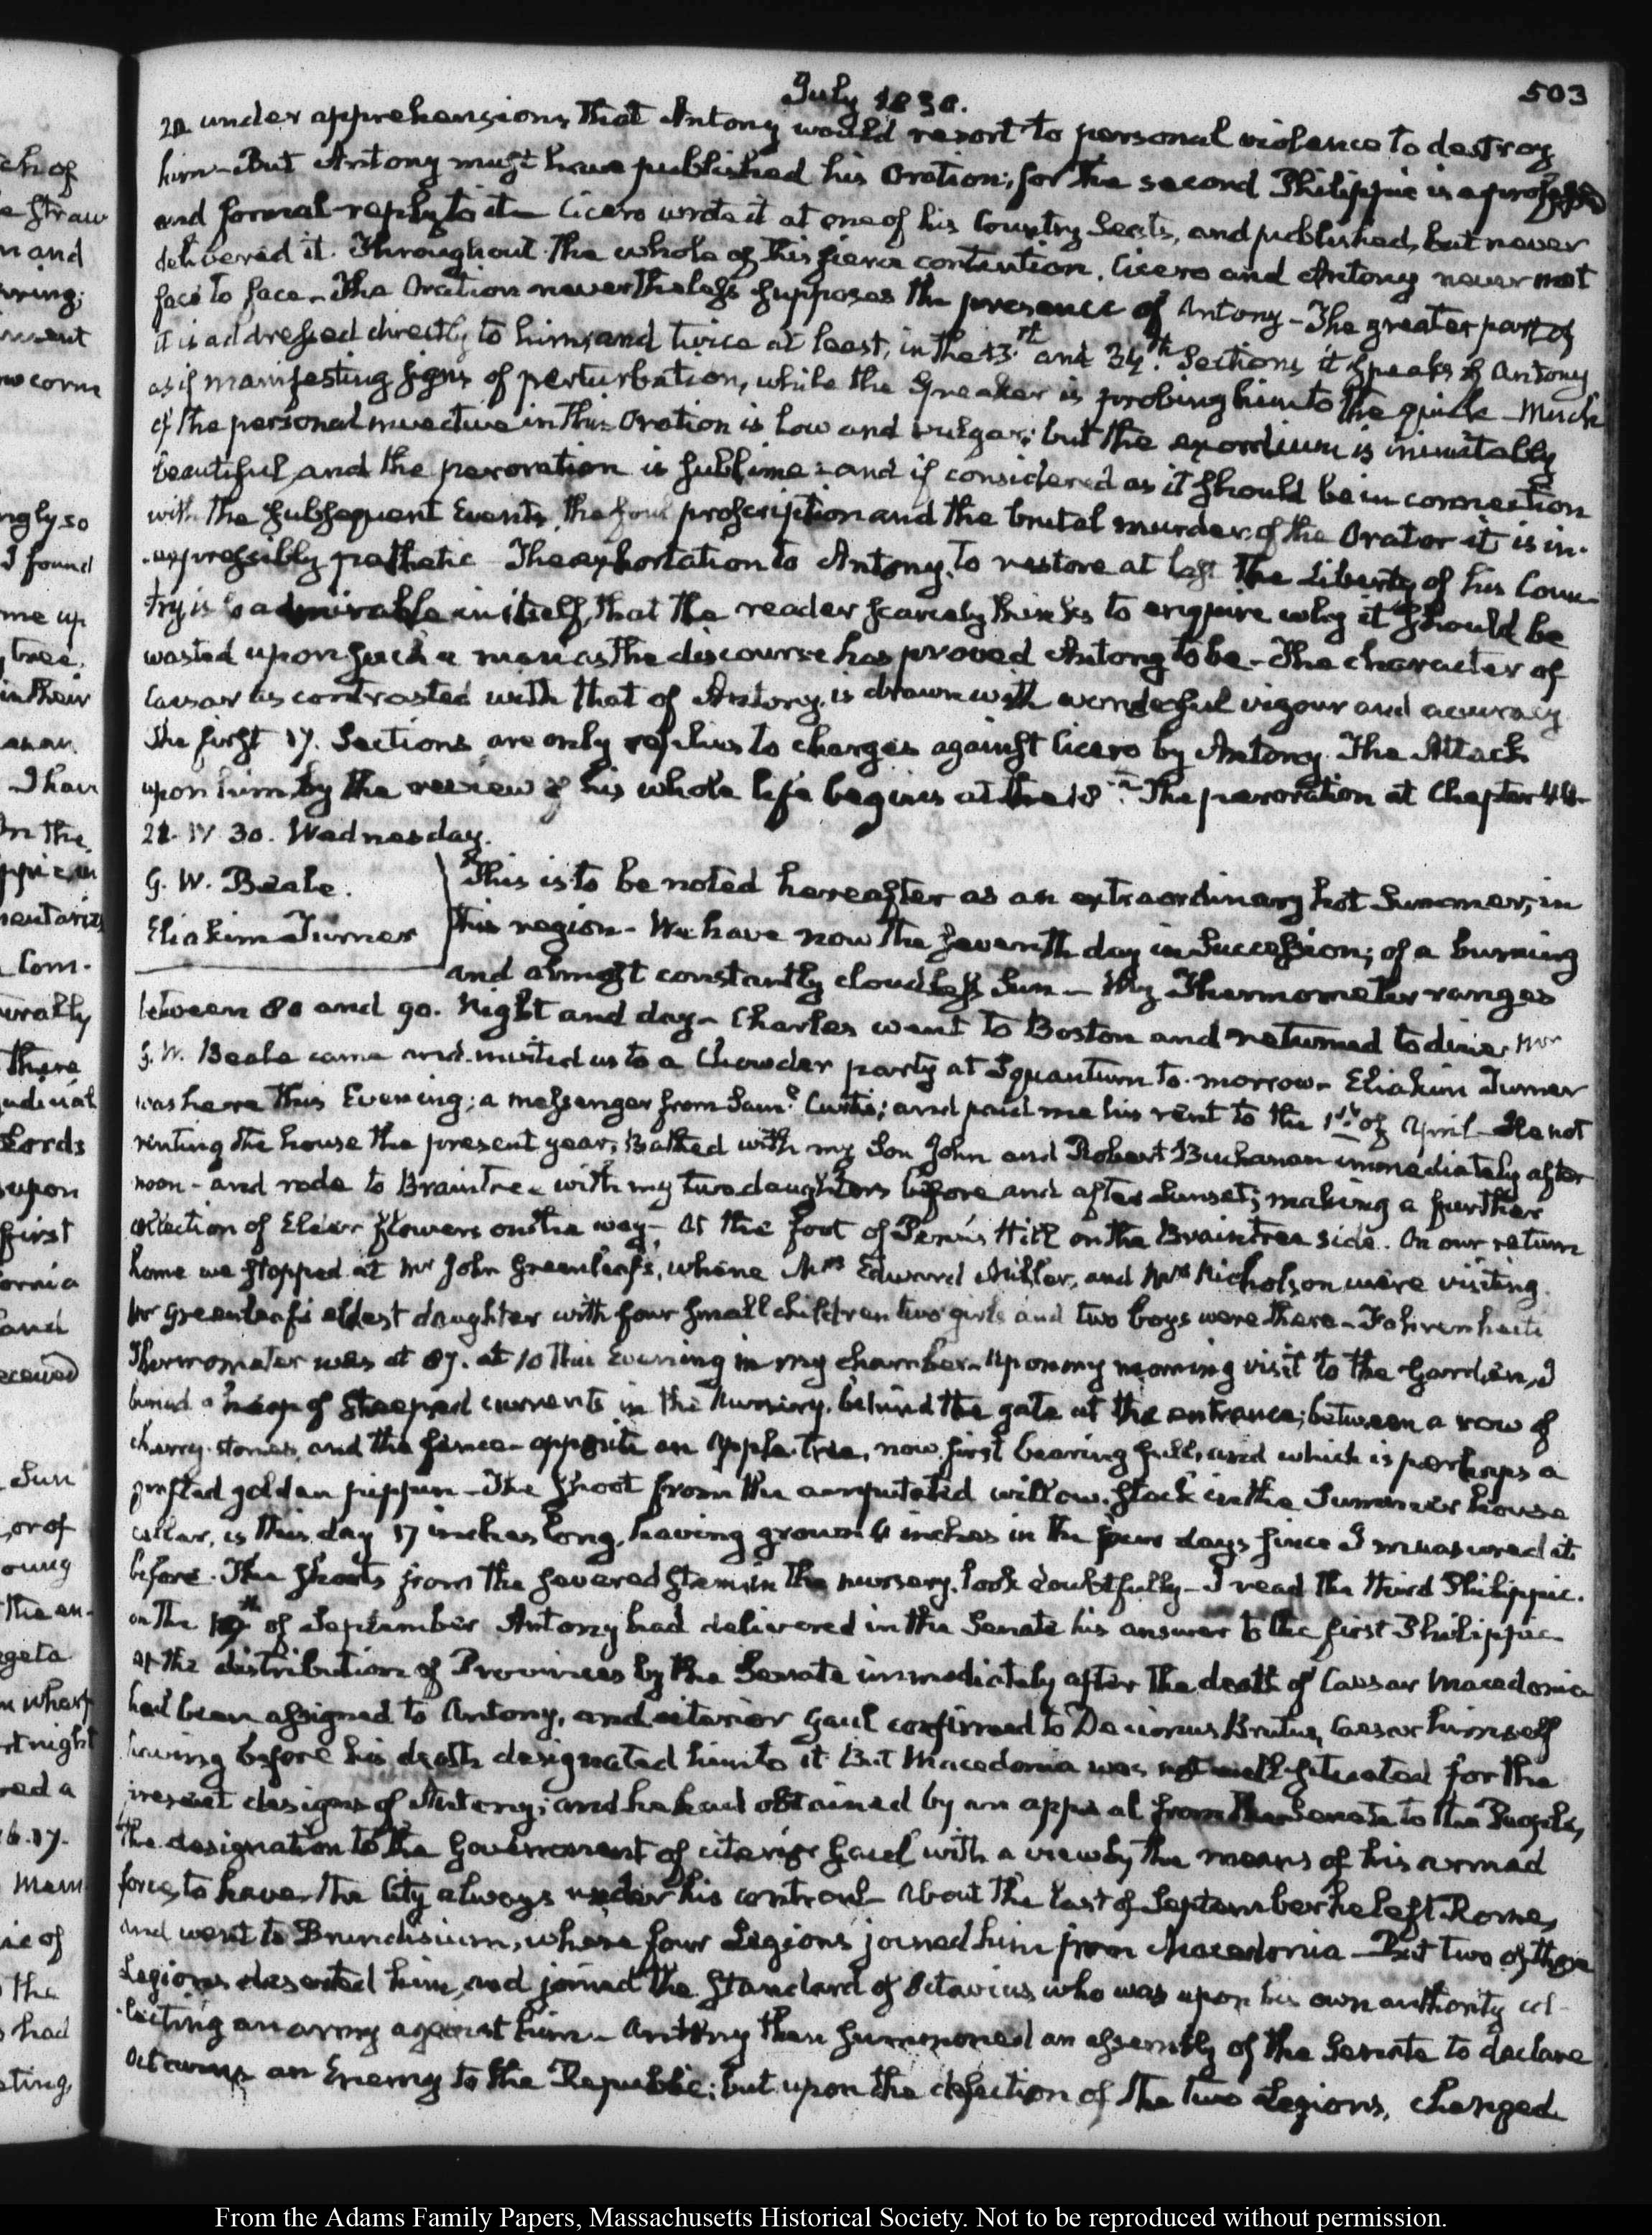 July 1830.
503
20 under apprehensions that Antony would resort to personal violence to destroy
him - But Antony must have published his Oration; for the second Philippic is a professed
and formal reply to it - Cicero wrote it at one of his Country Seats, and published, but never
delivered it. Throughout the whole of this fierce contention, Cicero and Antony never met
face to face - The Oration nevertheless supposes the presence of Antony - The greater part of
it is addressed directly to him; and twice at least, in the and 34.th Sections it speaks of Antony
as if manifesting signs of perturbation, while the Speaker is probing him to the quick - Much
of the personal invective in this Oration is low and vulgar; but the exordium is inimitably
beautiful, and the peroration is sublime: and if considered as it should be in connection
with the subsequent Events, the foul proscription and the brutal murder of the Orator it is in-
-expressibly pathetic - The exhortation to Antony, to restore at last the Liberty of his Coun-
try is so admirable in itself, that the reader scarcely thinks to enquire why it should be
wasted upon such a man as the discourse has proved Antony to be - The character of
Caesar as contrasted with that of Antony, is drawn with wonderful vigour and accuracy
The first 17. Sections are only replies to charges against Cicero by Antony. The Attack
upon him by the review of his whole life begins at the 18th The peroration at Chapter 44-
21. IV 30. Wednesday.
G. W. Beale.
Eliakim Turner
This is to be noted hereafter as an extraordinary hot Summer, in
this region - We have now the seventh day in Succession; of a burning
and almost constantly cloudless Sun - The Thermometer ranges
between 80 and 90. Night and day - Charles went to Boston and returned to dine. Mr
G. W. Beale came and invited us to a Chowder party at Squantum to-morrow - Eliakim Turner
was here this Evening; a messenger from Saml. Curtis; and paid me his rent to the 1st. of April - He not
renting the house the present year; Bathed with my Son John and Robert Buchanan immediately after
noon - and rode to Braintree with my two daughters before and after Sunset; making a further
collection of Elder flowers on the way - At the foot of Penn's Hill on the Braintree side. On our return
home we stopped at Mr John Greenleaf's, where Mrs Edward Miller, and Mrs Nicholson were visiting
Mr Greenleaf's eldest daughter with four small children two girls and two boys were there - Fahrenheit's
Thermometer was at 87. at 10 this Evening in my chamber - Upon my morning visit to the Garden, I
buried a heap of steeped currants in the Nursery, behind the gate at the entrance; between a row of
cherry-stones, and the fence - opposite an Apple tree, now first bearing full, and which is perhaps a
grafted golden pippin - The shoot from the amputated willow-stock in the Summer house
cellar, is this day 17 inches long, having grown 4 inches in the four days since I measured it
before. The shoots from the severed stem in the nursery, look doubtfully - I read the third Philippic.
On the 19th of September Antony had delivered in the Senate his answer to the first Philippic
At the distribution of Provinces by the Senate immediately after the death of Caesar Macedonia
had been assigned to Antony, and citerior Gaul confirmed to Decimus Brutus, Caesar himself
having before his death designated him to it. But Macedonia was not well situated for the
present designs of Antony; and he had obtained by an appeal from the Senate to the People,
the designation to the Government of citerior Gaul with a view by the means of his armed
force, to have the City always under his controul - About the last of September he left Rome,
and went to Brundisium, where four Legions joined him from Macedonia - But two of those
Legions deserted him, and joined the Standard of Octavius who was upon his own authority col-
-lecting an army against him - Antony then summoned an assembly of the Senate to declare
Octavius an Enemy to the Republic; but upon the defection of the two Legions, changed
From the Adams Family Papers, Massachusetts Historical Society. Not to be reproduced without permission.